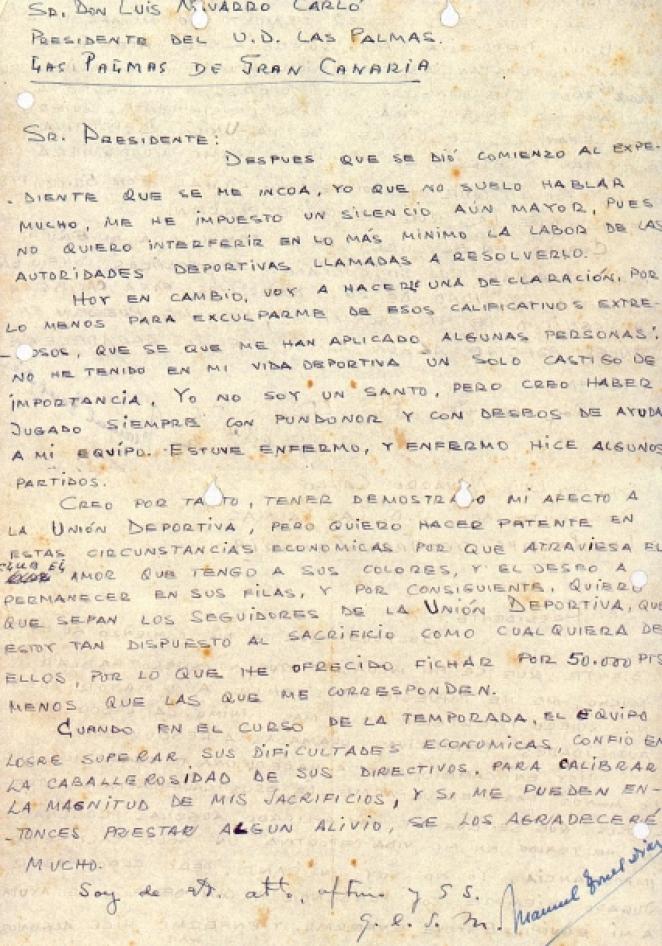 SR. DON LUIS NAVARRO CARLÓ
PRESIDENTE DEL U.D. LAS PALMAS.
LAS PALMAS DE GRAN CANARIA
SR. PRESIDENTE:
DESPUES QUE SE DIÓ COMIENZO AL EXPE-
-DIENTE QUE SE ME INCOA, YO QUE NO SUELO HABLAR
MUCHO, ME HE IMPUESTO UN SILENCIO AÚN MAYOR, PUES
NO QUIERO INTERFERIR EN LO MÁS MINIMO LA LABOR DE LAS
AUTORIDADES DEPORTIVAS LLAMADAS A RESOLVERLO.
HOY EN CAMBIO, VOY A HACERLE UNA DECLARACIÓN, POR
LO MENOS PARA EXCULPARME DE ESOS CALIFICATIVOS EXTRE-
-OSOS, QUE SE QUE ME HAN APLICADO ALGUNAS PERSONAS.
NO HE TENIDO EN MI VIDA DEPORTIVA UN SOLO CASTIGO DE
IMPORTANCIA. YO NO SOY UN SANTO, PERO CREO HABER
JUGADO SIEMPRE CON PUNDONOR Y CON DESEOS DE AYUDA
A MI EQUIPO. ESTUVE ENFERMO, Y ENFERMO HICE ALGUNOS
PARTIDOS.
CREO POR TANTO, TENER DEMOSTRADO MI AFECTO A
LA UNIÓN DEPORTIVA, PERO QUIERO HACER PATENTE EN
ESTAS CIRCUNSTANCIAS ECONOMICAS POR QUE ATRAVIESA EL
CLUB EL AMOR QUE TENGO A SUS COLORES, Y EL DESEO A
PERMANECER EN SUS FILAS, Y POR CONSIGUIENTE, QUIERO
QUE SEPAN LOS SEGUIDORES DE LA UNIÓN DEPORTIVA, QUE
ESTOY TAN DISPUESTO AL SACRIFICIO COMO CUALQUIERA DE
ELLOS, POR LO QUE HE OFRECIDO FICHAR POR 50.000 PTS
MENOS QUE LAS QUE ME CORRESPONDEN.
CUANDO EN EL CURSO DE LA TEMPORADA, EL EQUIPO
LOGRE SUPERAR SUS DIFICULTADES ECONOMICAS, CONFIO EN
LA CABALLEROSIDAD DE SUS DIRECTIVOS, PARA CALIBRAR
LA MAGNITUD DE MIS SACRIFICIOS, Y SI ME PUEDEN EN-
-TONCES PRESTAR ALGUN ALIVIO, SE LOS AGRADECERÉ
MUCHO.
Soy de Vd. atto, aftmo y S S.
q. e. s. m. Manuel